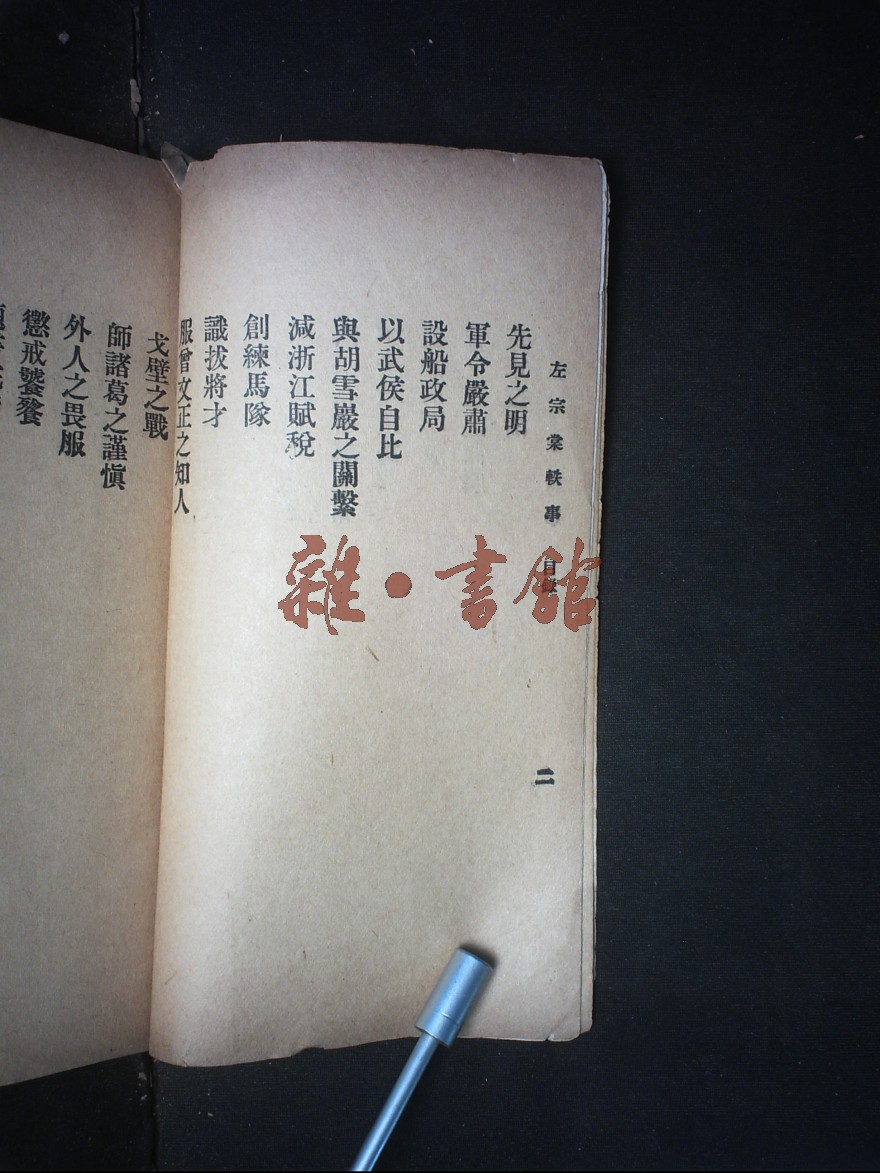 左宗棠軼事 目錄
二
先見之明
軍令嚴肅
設船政局
以武侯自比
與胡雪巖之關繫
減浙江賦稅
創練馬隊
識拔將才
服曾文正之知人
戈壁之戰
師諸葛之謹慎
外人之畏服
懲戒饕餮
雜·書館